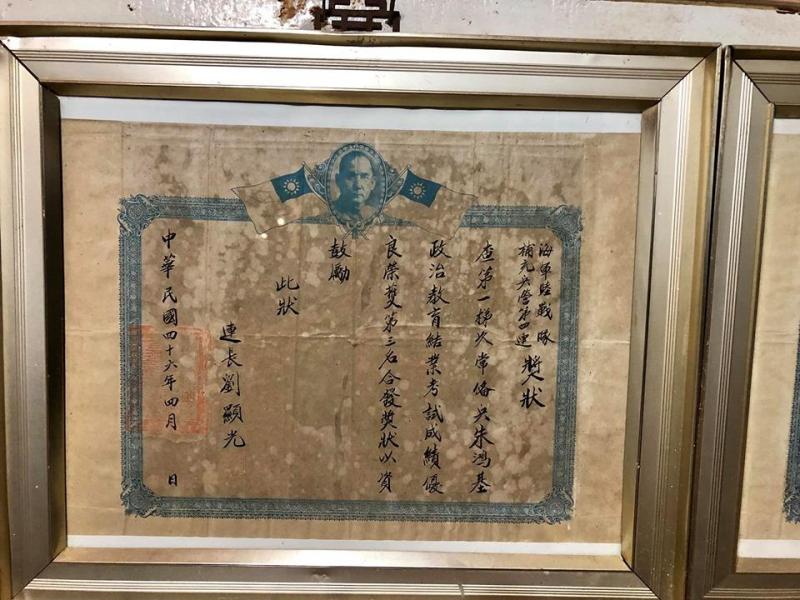 海軍陸戰隊
補充兵營第四連
獎狀
查第一梯次常備兵朱鴻基
政治教育結業考試成績優
良榮獲第三名合發獎狀以資
鼓勵
此狀
連長劉顯光
中華民國四十六年四月 日